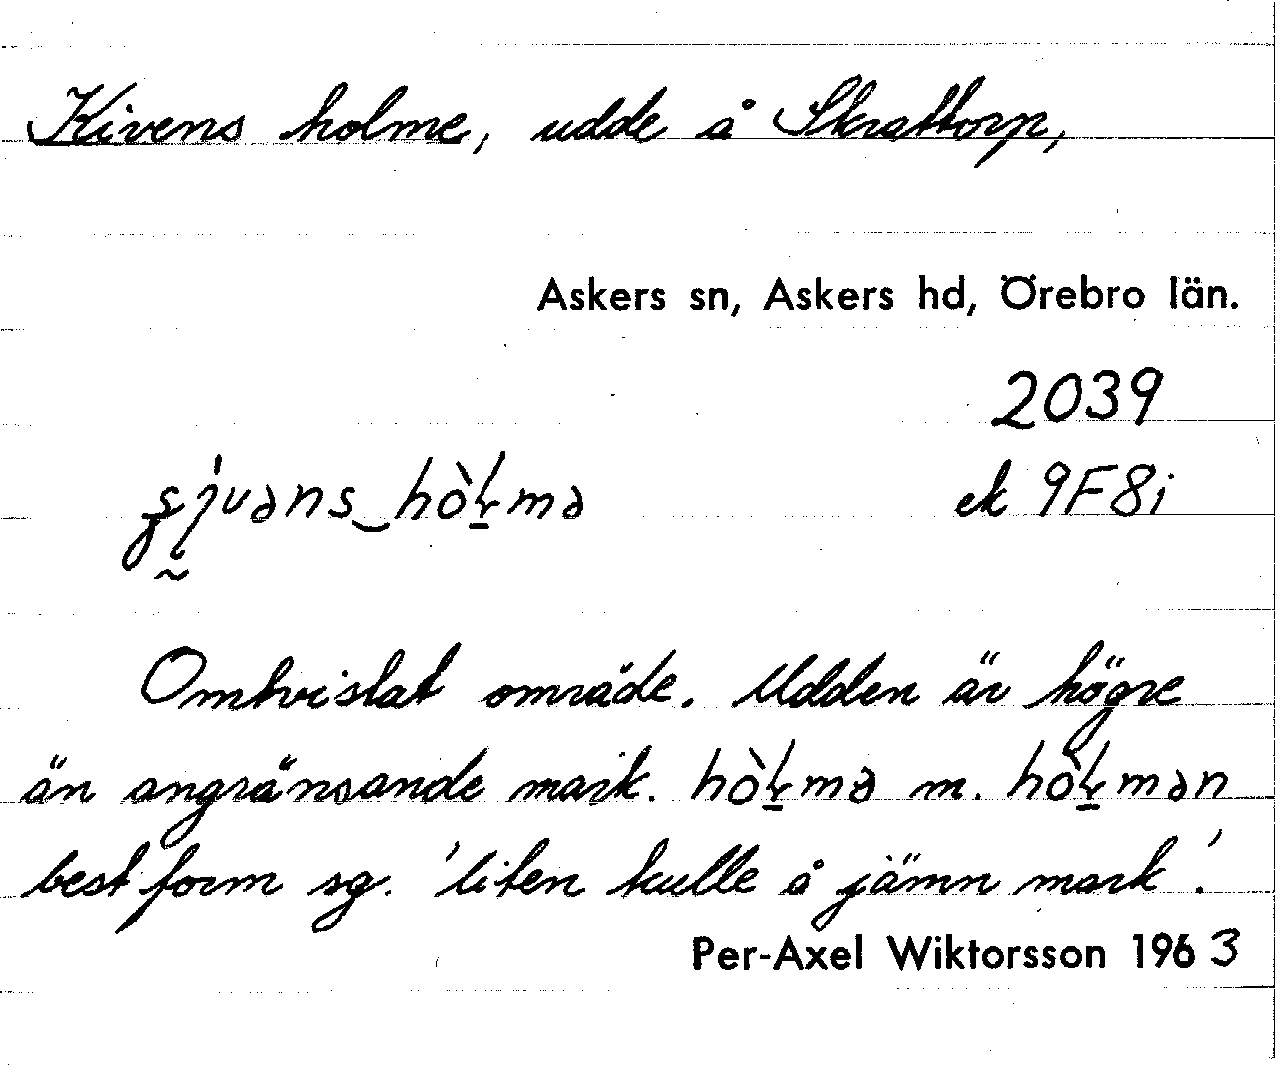 Kivens holme, udde å Skrattorp,
Askers sn, Askers hd, Örebro län.
2039
ek 9F8i
Omtvistat område. Udden är högre
än angränsande mark. hò̀ɫmə m. hòɫmən
best form sg. 'liten kulle å jämn mark'.
Per-Axel Wiktorsson 1963